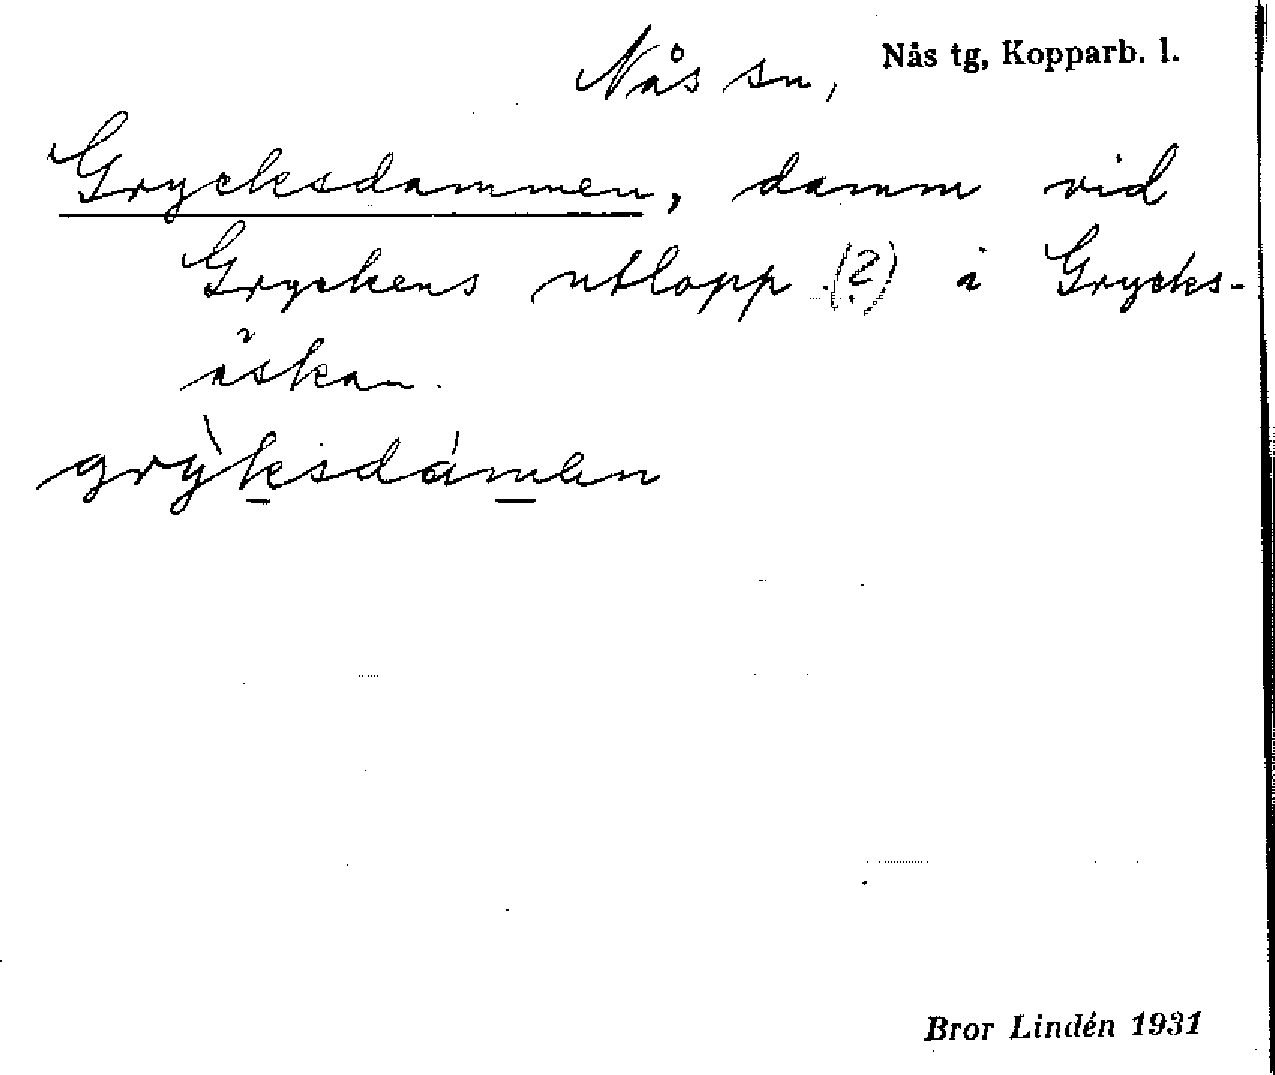 Nås sn, Nås tg, Kopparb. l.
Grycksdammen, damm vid
Gryckens utlopp (?) i Grycks-
åskan.
grỳksdámen
Bror Lindén 1931